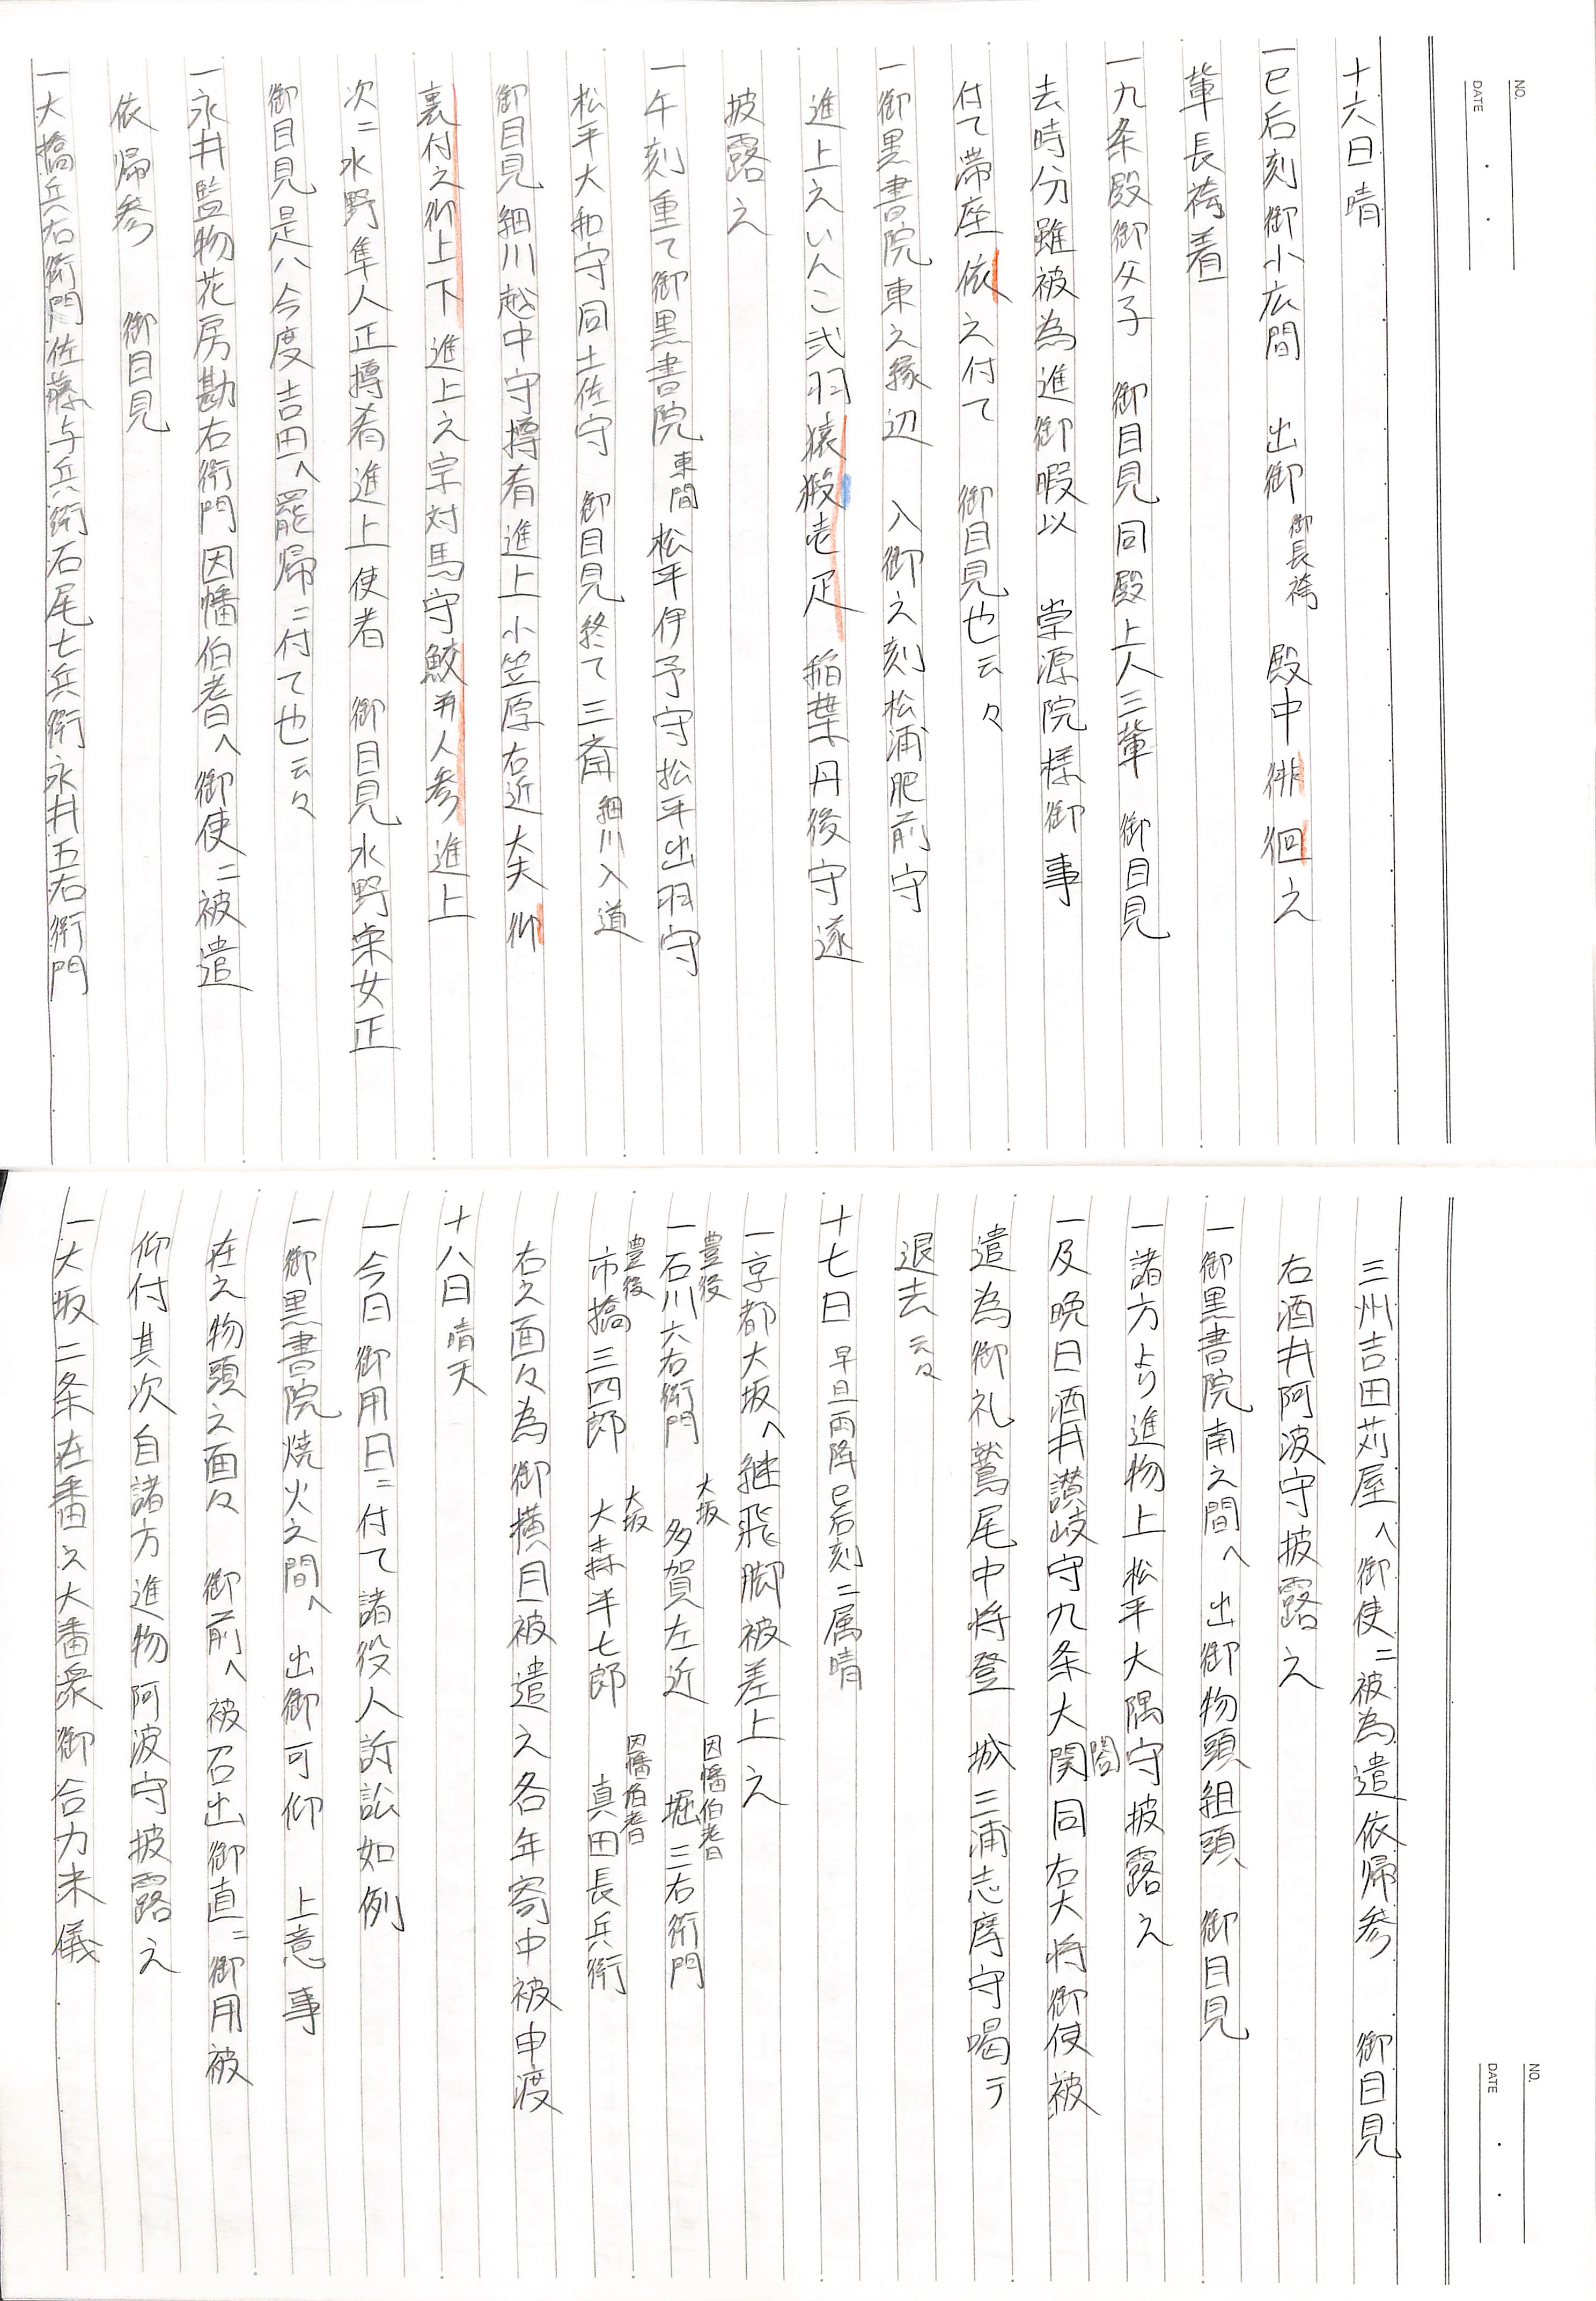 NO.
DATE
十六日 晴
一巳后刻御小広間 出御 御長袴 殿中徘徊之
輩長袴着
一九条殿御父子 御目見同殿上人三輩 御目見
去時分雖被為進御暇以 崇源院様御事
付て滞座依之付て 御目見也云々
一御黒書院東之縁辺 入御之刻松浦肥前守
進上之いんこ弐羽猿猴壱疋 稲葉丹後守遂
披露之
一午刻重て御黒書院 東間 松平伊予守松平出羽守
松平大和守同土佐守 御目見終て三斎 細川入道
御目見細川越中守樽肴進上小笠原右近大夫御
裏付之御上下進上之宗対馬守鮫并人参進上
次ニ水野隼人正樽肴進上使者 御目見水野采女正
御目見是ハ今度吉田へ罷帰ニ付て也云々
一永井監物花房勘右衛門因幡伯耆へ御使ニ被遣
依帰参 御目見
一大橋兵右衛門佐藤与兵衛石尾七兵衛永井五右衛門
NO.
DATE
三州吉田苅屋へ御使ニ被為遣依帰参 御目見
右酒井阿波守披露之
一御黒書院南之間へ 出御物頭組頭 御目見
一諸方より進物上松平大隅守披露之
一及晩日酒井讃岐守九条大関同右大将御使被
閤
遣為御礼鷲尾中将登 城三浦志摩守喝テ
退去云々
十七日 早旦雨降巳后刻ニ属晴
一京都大坂へ継飛脚被差上之
豊後 大坂 因幡伯耆
一石川六右衛門 多賀左近 堀三右衛門
豊後 大坂 因幡伯耆
市橋三四郎 大森半七郎 真田長兵衛
右之面々為御横目被遣之各年寄中被申渡
十八日 晴天
一今日御用日ニ付て諸役人訴訟如例
一御黒書院焼火之間へ 出御可仰 上意事
在之物頭之面々 御前へ被召出御直ニ御用被
仰付其次自諸方進物阿波守披露之
一大坂二条在番之大番衆御合力米儀